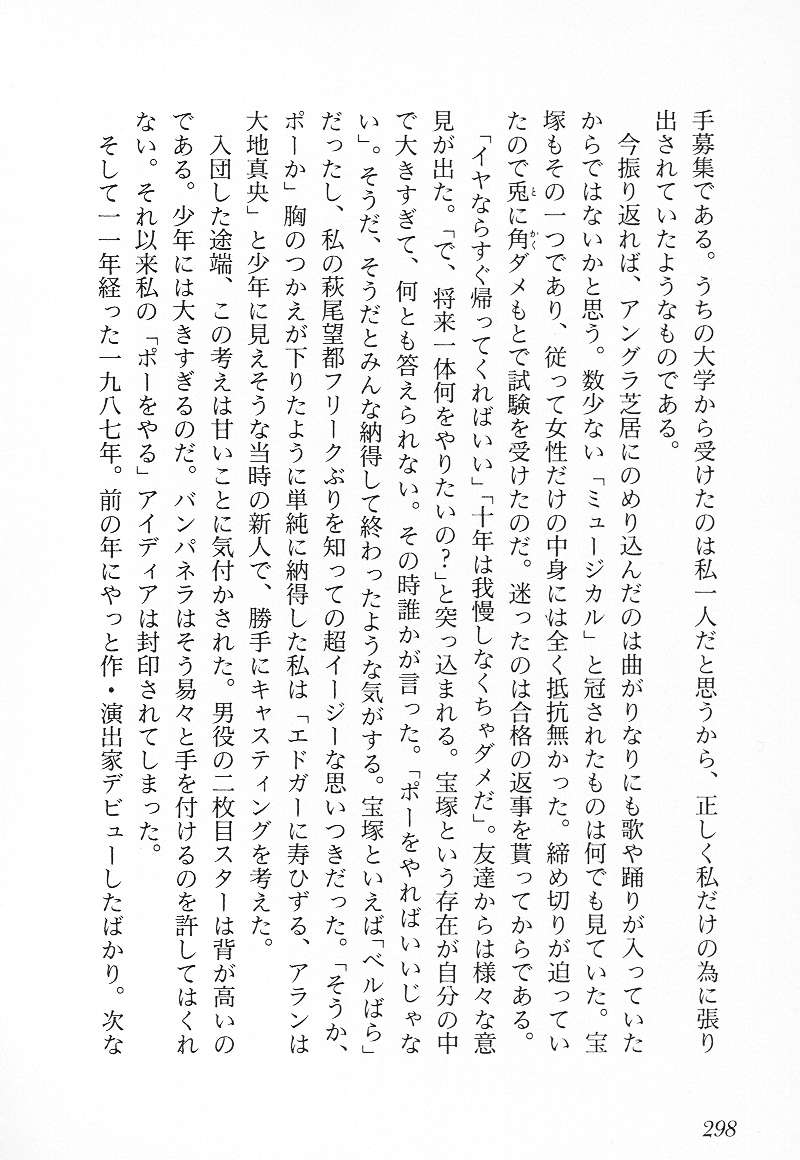 手募集である。うちの大学から受けたのは私一人だと思うから、正しく私だけの為に張り
出されていたようなものである。
　今振り返れば、アングラ芝居にのめり込んだのは曲がりなりにも歌や踊りが入っていた
からではないかと思う。数少ない「ミュージカル」と冠されたものは何でも見ていた。宝
塚もその一つであり、従って女性だけの中身には全く抵抗無かった。締め切りが迫ってい
たので兎に角ダメもとで試験を受けたのだ。迷ったのは合格の返事を貰ってからである。
　「イヤならすぐ帰ってくればいい」「十年は我慢しなくちゃダメだ」。友達からは様々な意
見が出た。「で、将来一体何をやりたいの？」と突っ込まれる。宝塚という存在が自分の中
で大きすぎて、何とも答えられない。その時誰かが言った。「ポーをやればいいじゃな
い」。そうだ、そうだとみんな納得して終わったような気がする。宝塚といえば「ベルばら」
だったし、私の萩尾望都フリークぶりを知っての超イージーな思いつきだった。「そうか、
ポーか」胸のつかえが下りたように単純に納得した私は「エドガーに寿ひずる、アランは
大地真央」と少年に見えそうな当時の新人で、勝手にキャスティングを考えた。
　入団した途端、この考えは甘いことに気付かされた。男役の二枚目スターは背が高いの
である。少年には大きすぎるのだ。バンパネラはそう易々と手を付けるのを許してはくれ
ない。それ以来私の「ポーをやる」アイディアは封印されてしまった。
　そして一一年経った一九八七年。前の年にやっと作・演出家デビューしたばかり。次な
298